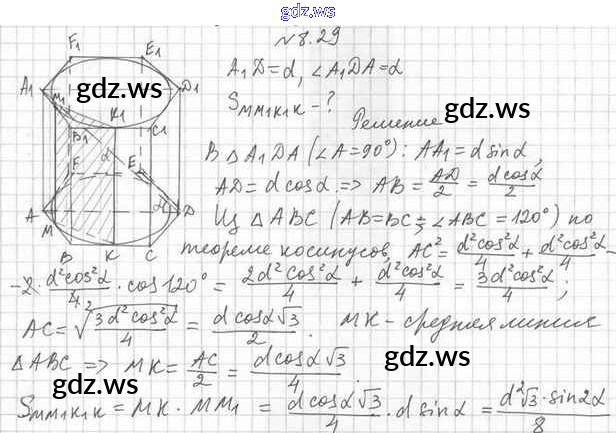 gdz.ws
N 8.29
F1 E1
A1 D1 A1D=d, ∠A1DA=α
M1 gdz.ws
K1 SMM1K1K - ?
B1 C1 Решение gdz.ws
В △ A1DA (∠A=90°): AA1 = d sinα,
F E d
AD = d cosα => AB = AD/2 = d cosα/2
A M α D Из △ABC (AB=BC; ∠ABC=120°) по
B K C теореме косинусов, AC² = d²cos²α/4 + d²cos²α/4 -
-2· d²cos²α/4 · cos120° = 2d²cos²α/4 + d²cos²α/4 = 3d²cos²α/4;
AC = √(3d²cos²α/4) = d cosα√3/2. MK - средняя линия
△ABC => MK = AC/2 = d cosα√3/4. gdz.ws
gdz.ws
SMM1K1K = MK · MM1 = d cosα√3/4 · d sinα = d²√3·sin2α/8